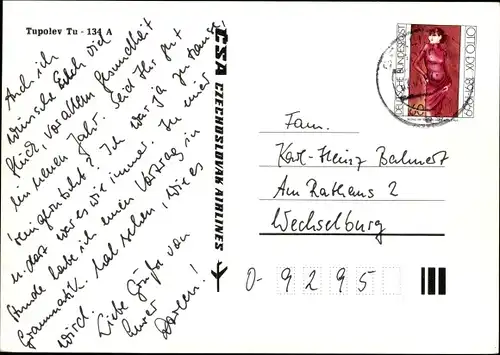 Tupolev Tu - 134 A
Auch ich
wünsche Euch viel
Glück, vor allem Gesundheit
im neuen Jahr. Seid Ihr gut
reingerutscht? Ich war ja zu Hause,
u. dort war es wie immer. In einer
Stunde habe ich einen Vortrag in
Grammatik. Mal sehen, wie es
wird. Liebe Grüße von
Eurer
ČSA CZECHOSLOVAK AIRLINES
DEUTSCHE BUNDESPOST
OTTO DIX
Fam.
Karl-Heinz Bahnert
Am Rathaus 2
Wechselburg
O- 9295